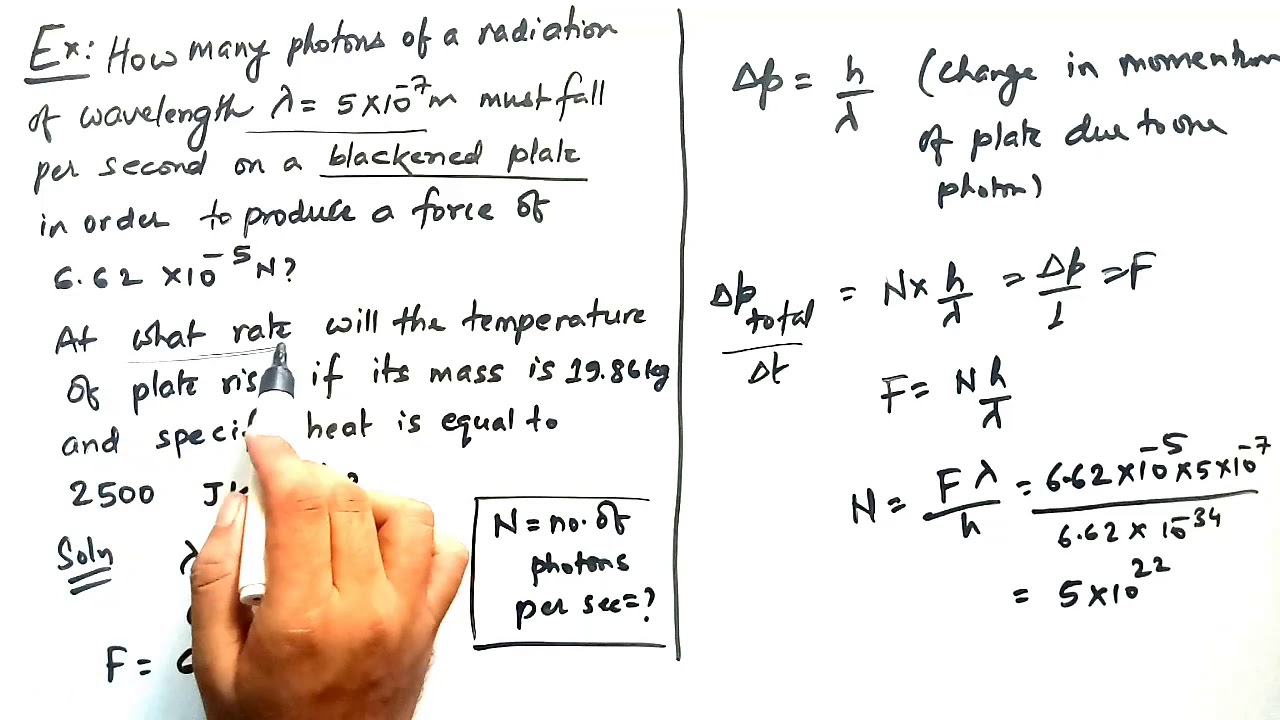 Ex: How many photons of a radiation
of wavelength λ = 5×10⁻⁷m must fall
per second on a blackened plate
in order to produce a force of
6.62 ×10⁻⁵ N?
At what rate will the temperature
of plate ris if its mass is 19.86kg
and specif heat is equal to
2500 J
Soln λ
F =
N = no. of
photons
per sec = ?
Δp = h/λ (change in momentum
of plate due to one
photon)
Δp total/Δt = N× h/λ = Δp/1 = F
F = N h/λ
N = F λ/h = 6.62×10⁻⁵×5×10⁻⁷/6.62×10⁻³⁴
= 5×10²²